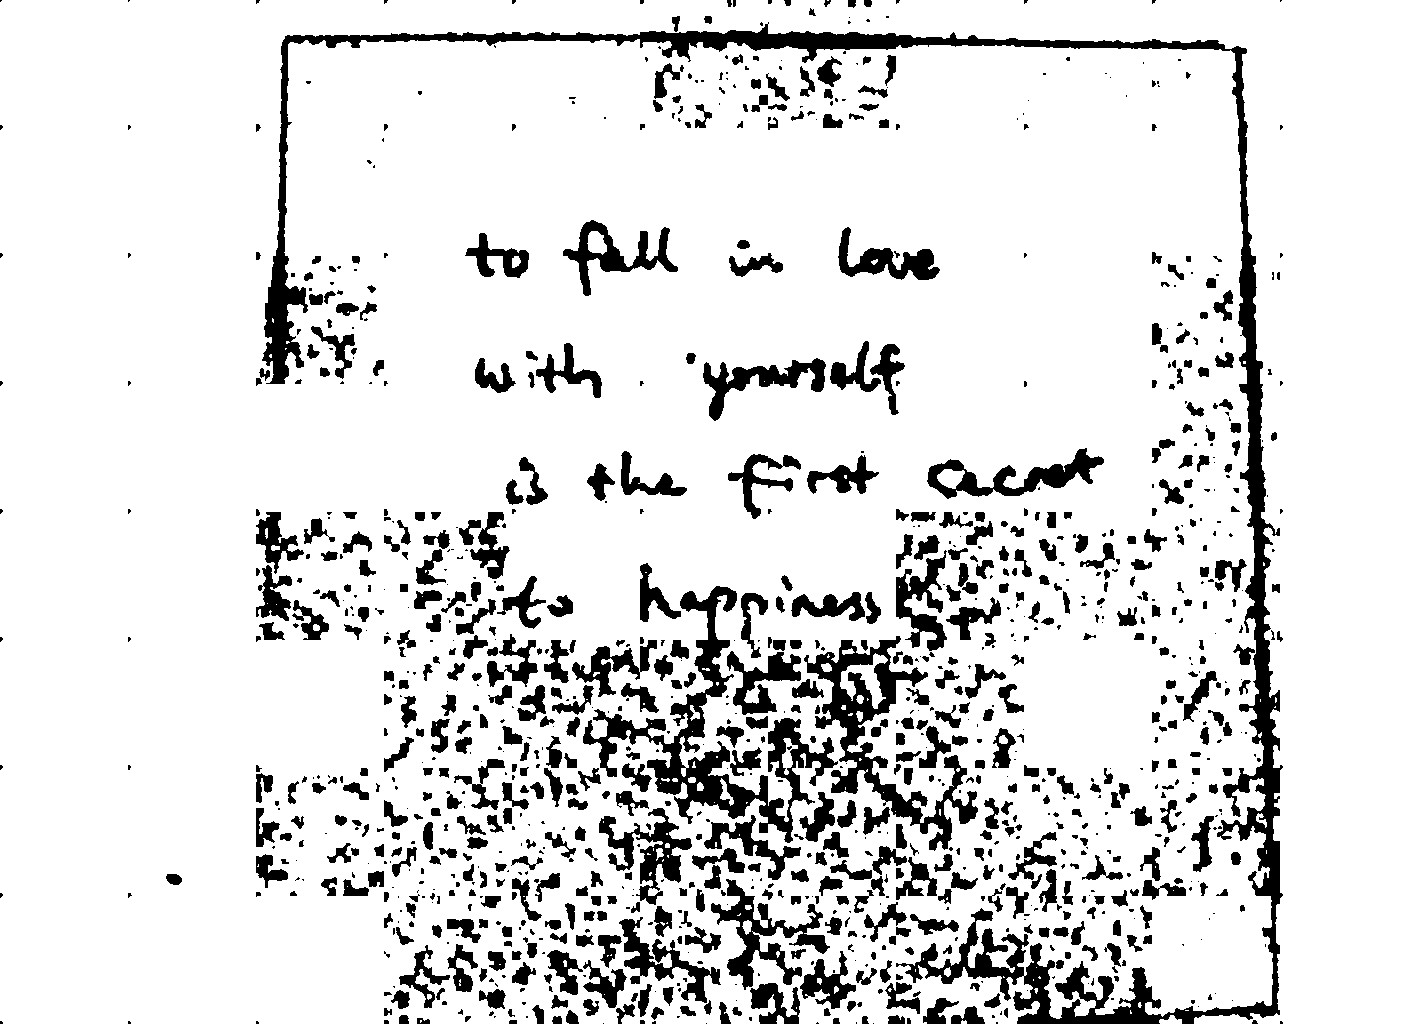 to fall in love
with yourself
is the first secret
to happiness